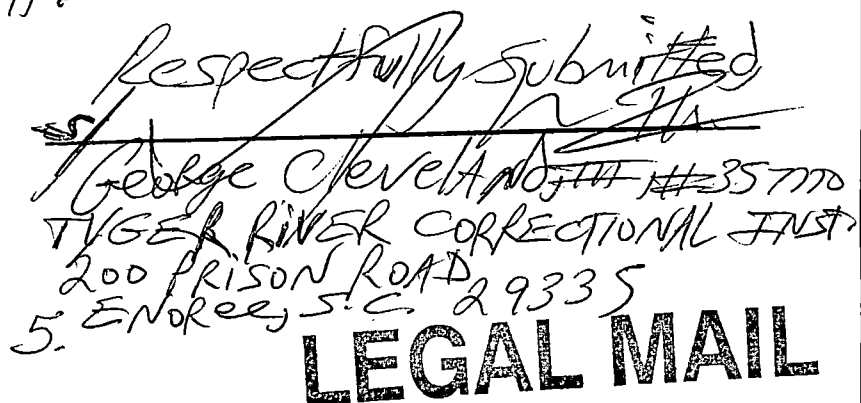 Respectfully Submitted,
s/
George Cleveland, III, #357770
TYGER RIVER CORRECTIONAL INST.
200 PRISON ROAD
ENOREE, S.C. 29335
5.
LEGAL MAIL